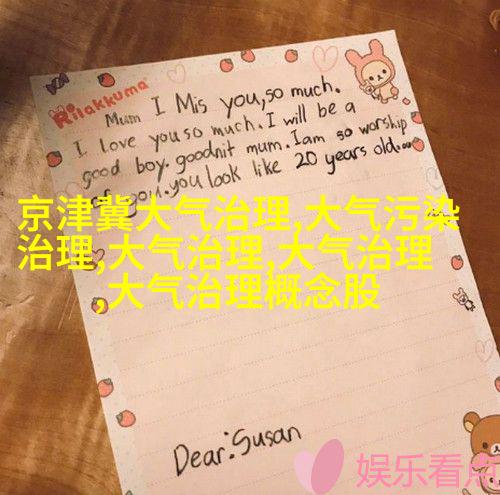 Rilakkuma
Mum I Mis you,so much.
I love you so much. I will be a
good boy. goodnit mum. I am so worship
of you. you look like 20 years old.
京津冀大气治理,大气污染
治理,大气治理,大气治理
,大气治理概念股
Dear: Susan
娱乐看点